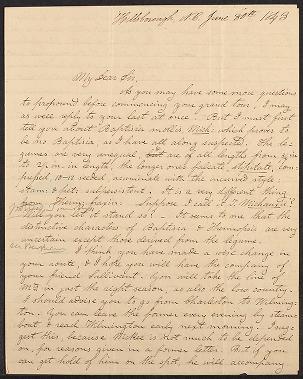 Hillsborough, N.C. June 30th 1843
My Dear Sir,
As you may have some more questions
to propound before commencing your grand tour, I may
as well reply to your last at once. But I must first
tell you about Baptisia mollis, Mich: which proves to
be no Baptisia, as I have all along suspected. The le-
gumes are very unequal, and are of all lengths from
in. to in. in length, the longer ones falcate, stipitate, com-
pressed, 10-12 seeded acuminate with the incurved style
stam: & pet: subpersistent. It is a very different thing
from Therm: fraxin: Suppose I call it T. Michauxii?
Will you let it stand so? — It seems to me that the
distinctive characters of Baptisia & Thermopsis are very
uncertain except those derived from the legume.
I think you have made a wise change in
your route, & I hope you will have the company of
your friend Sullivant. You will take the line of
Mts in just the right season, as also the low country.
I should advise you to go from Charleston to Wilming-
ton. You can leave the former every evening by steam
boat & reach Wilmington early next morning. I sug-
gest this because Wilkes is not much to be depended
on, for reasons given in a former letter. But if you
can get hold of him on the spot, he will accompany